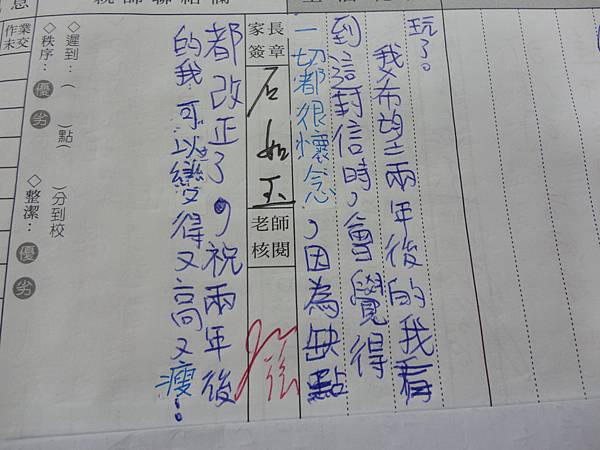 玩了。
我希望二兩年後的我看
到這封信時,會覺得
一切都很懷念,因為缺點
家長簽章
石如玉
老師核閱
都改正了,祝兩年後
的我可以變得又高又瘦!
◇遲到:( )點( )分到校
◇秩序:優 劣
◇整潔:優 劣
作業未交
息